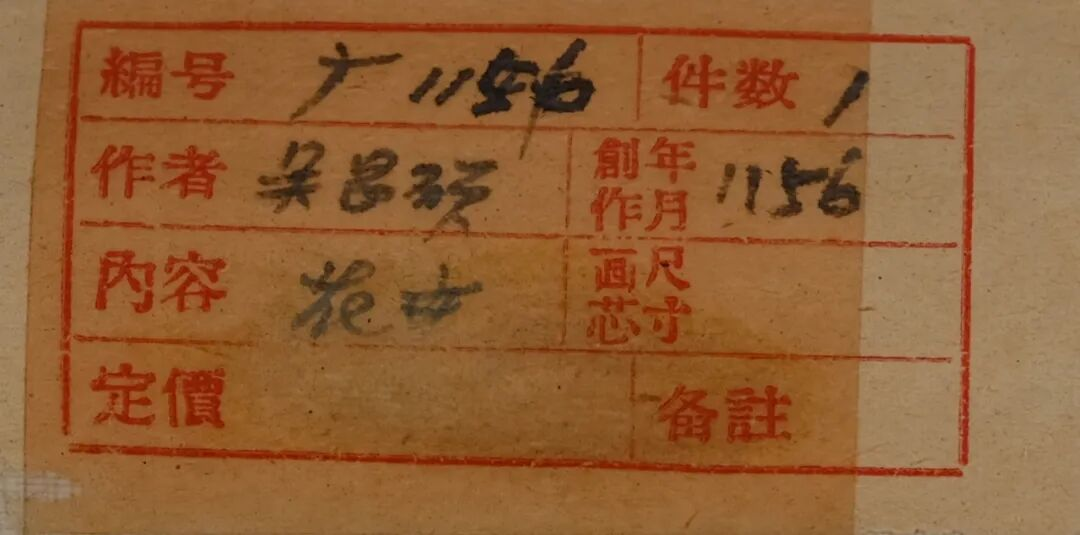 編号 广 11546 件数 1
作者 吴昌硕 創作年月 1156
內容 花卉 画芯尺寸
定價 备註